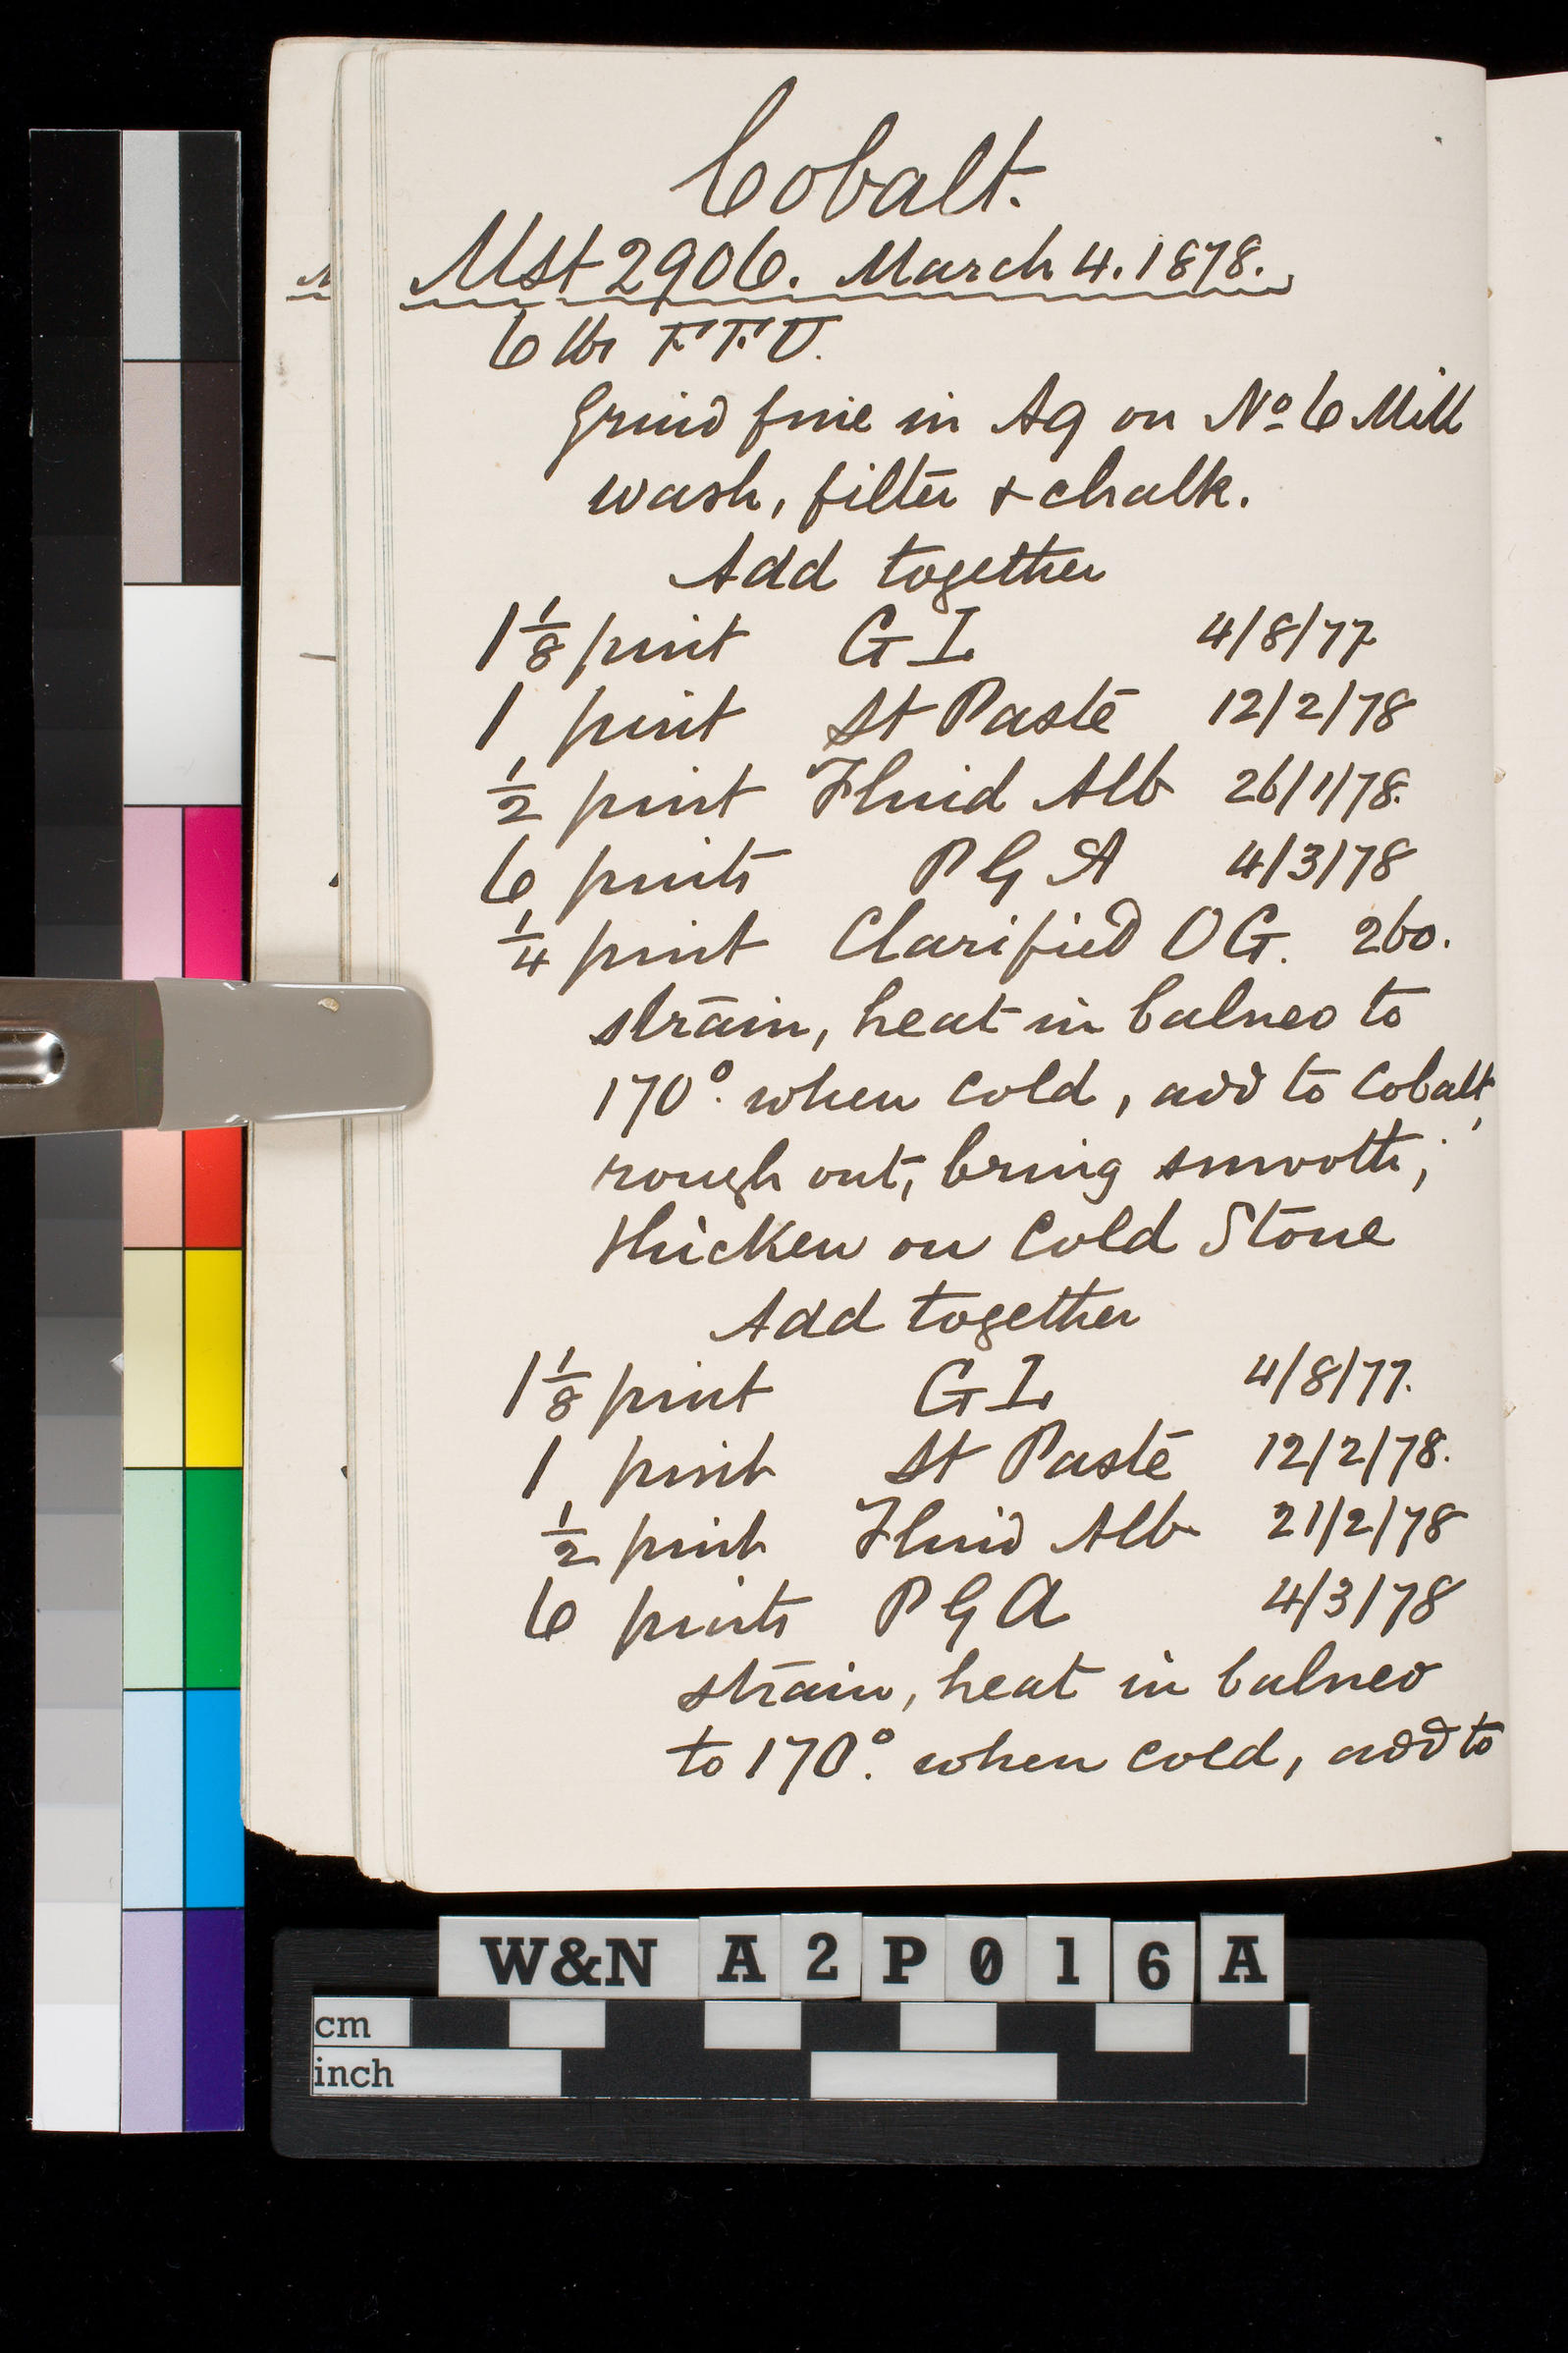 Cobalt.
Mst 2906. March 4. 1878.
6 lbs F.F.U.
Grind fine in Aq on No 6 Mill
wash, filter & chalk.
Add together
1 1/8 pint GI 4/8/77
1 pint St Paste 12/2/78
1/2 pint Fluid Alb 26/1/78.
6 pints P G A 4/3/78
1/4 pint Clarified OG. 260.
strain, heat in balneo to
170°. when cold, add to Cobalt,
rough out, bring smooth,
thicken on Cold Stone
Add together
1 1/8 pint GI 4/8/77.
1 pint St Paste 12/2/78.
1/2 pint Fluid Alb 21/2/78
6 pints P G A 4/3/78
strain, heat in balneo
to 170°. when cold, add to
W&N A2P016A
cm
inch